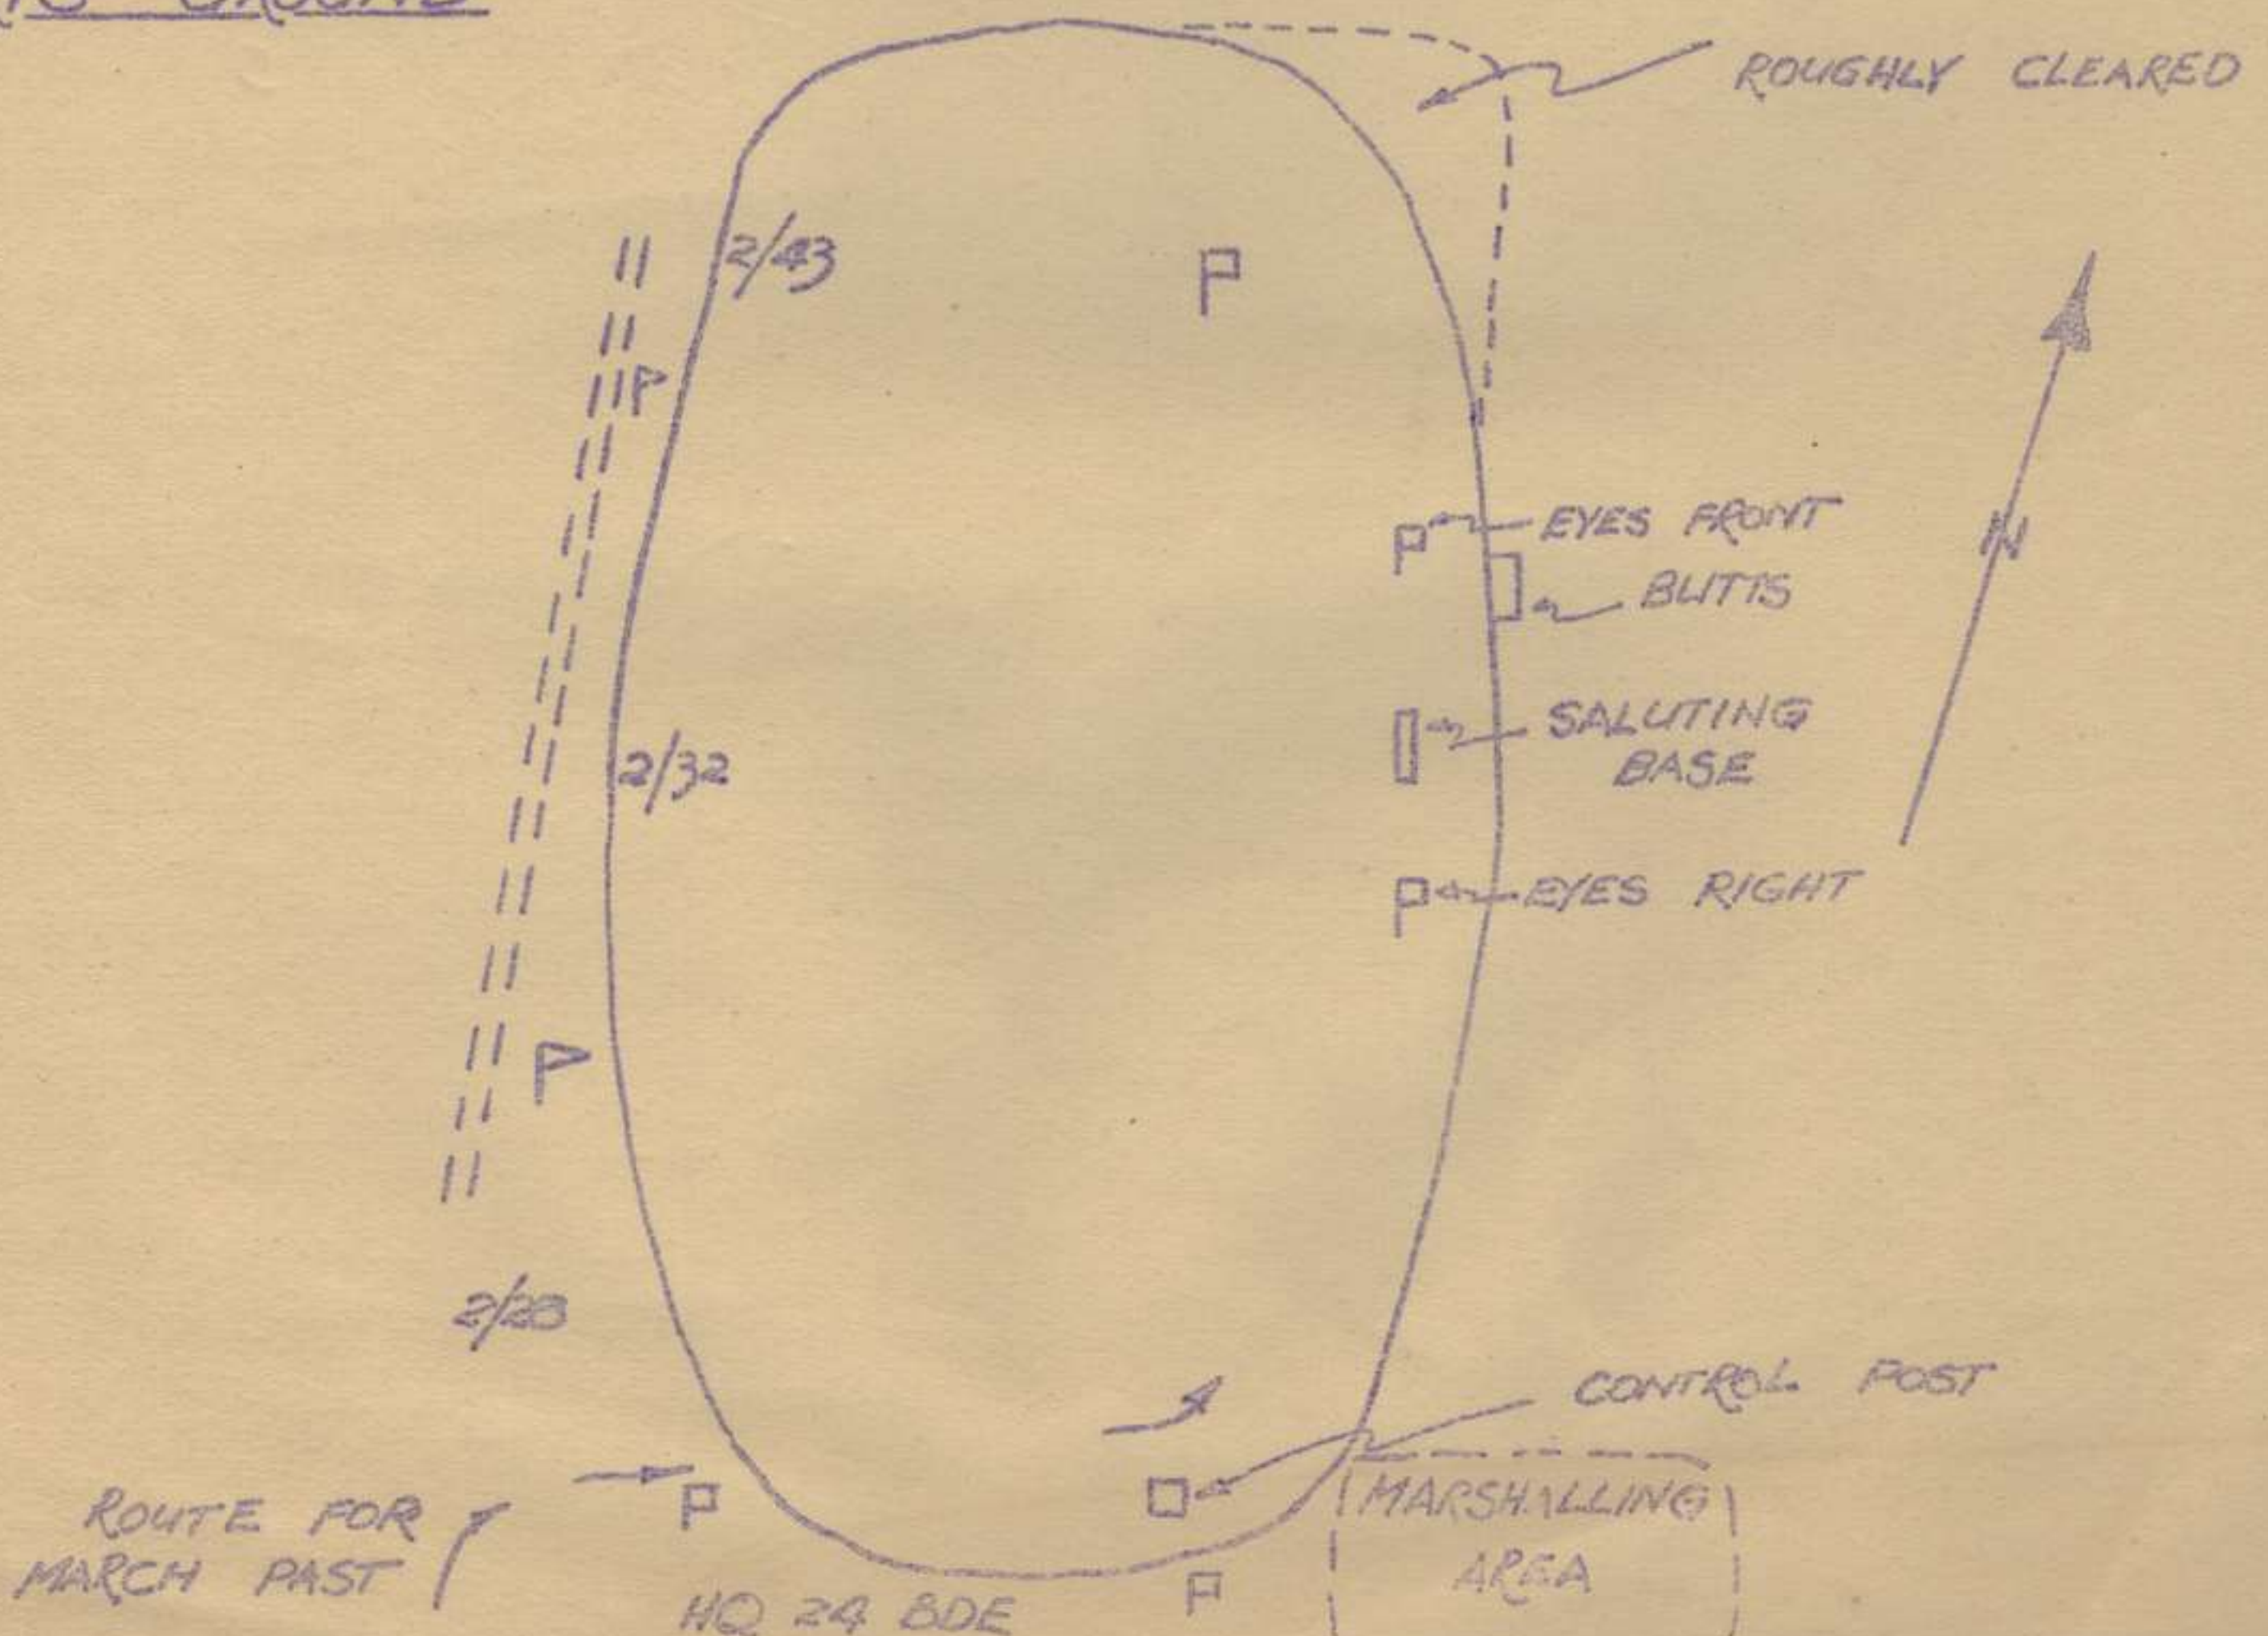 GROUND
ROUGHLY CLEARED
2/43
P
P
N
P EYES FRONT
BUTTS
SALUTING
BASE
2/32
P EYES RIGHT
P
2/28
CONTROL POST
ROUTE FOR
MARCH PAST
P
MARSHALLING
AREA
HQ 24 BDE
P